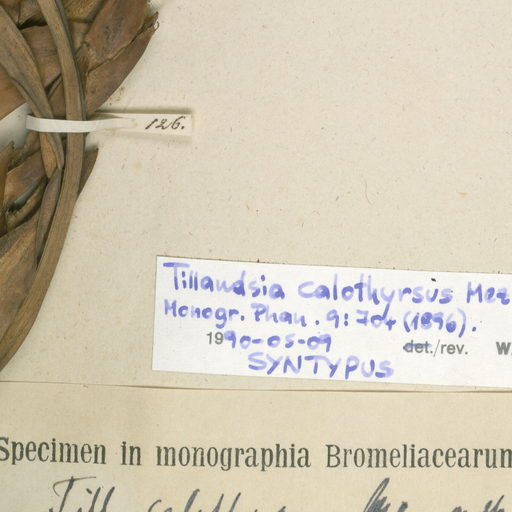 126.
Tillandsia calothyrsus Mez
Monogr. Phan. 9: 704 (1896).
1990-05-09 det./rev. W.
SYNTYPUS
Specimen in monographia Bromeliacearum
Till.